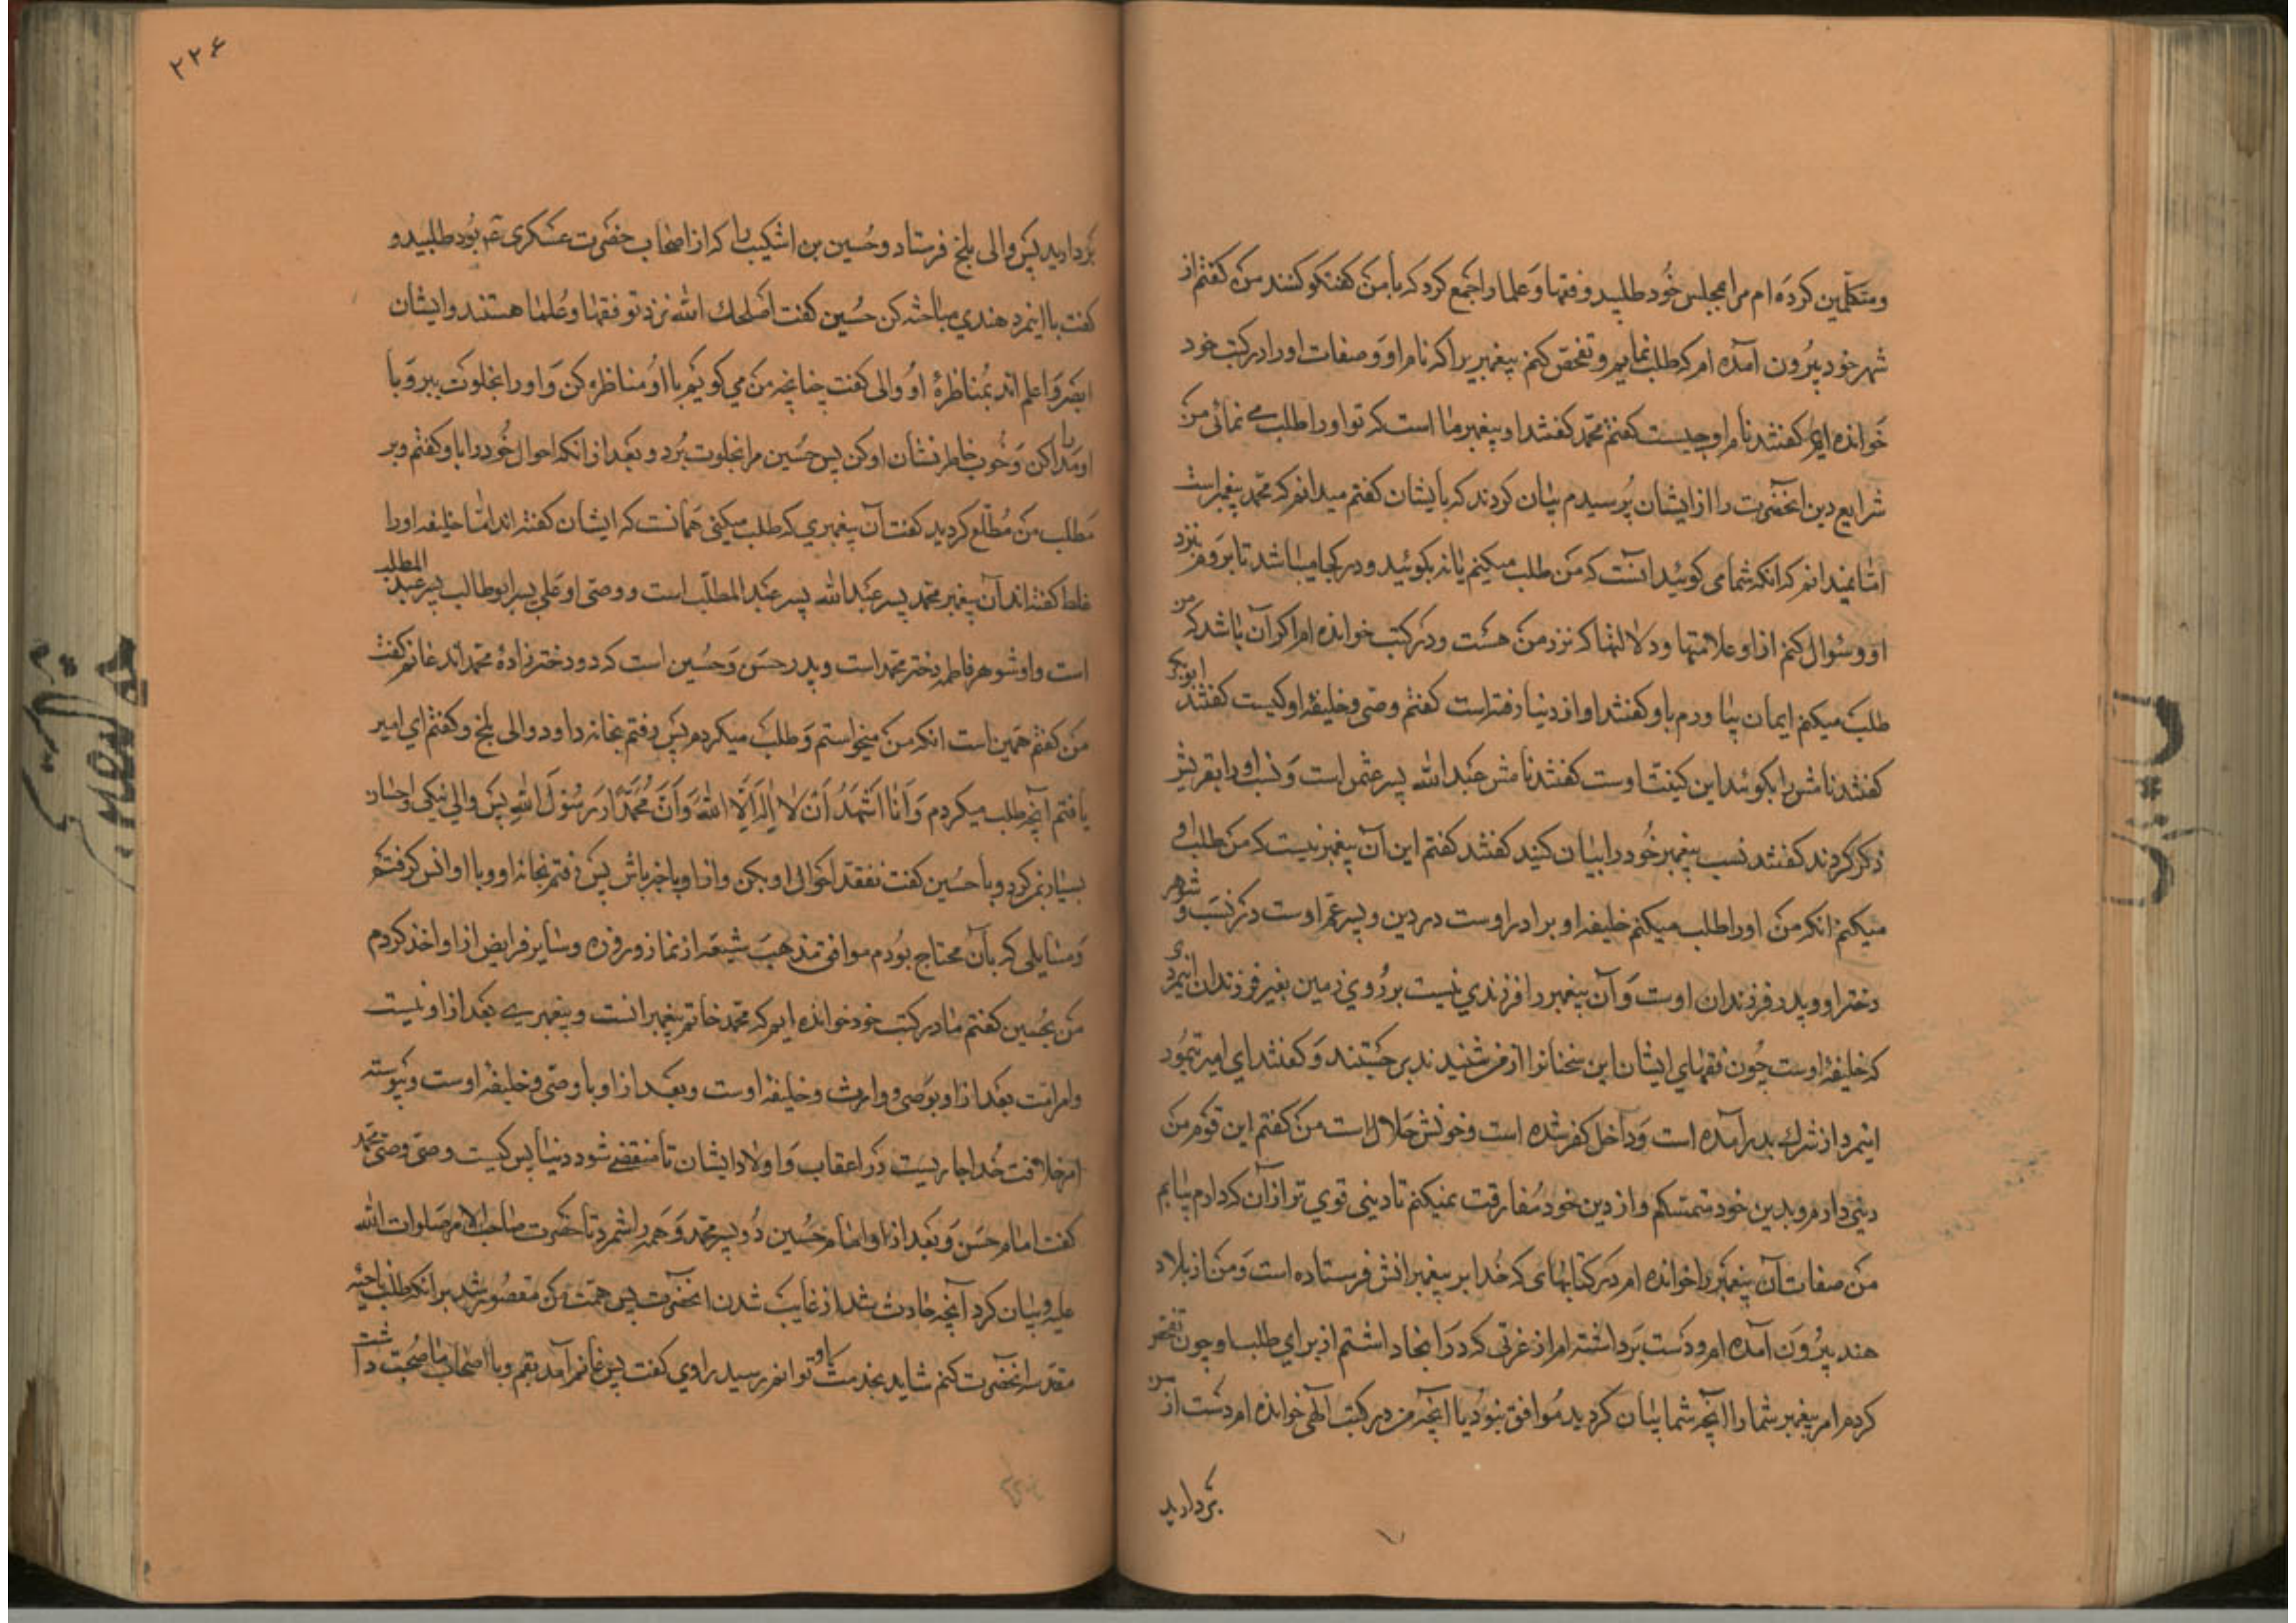 ومتکلّمین کرده ام مرا بمجلس خود طلبید و فقها و علما را جمع کرد که با من کفتکو کنند من کفتم از
شهر خود بیرون آمده ام که طلب نمایم و تفحّص کنم پیغمبریرا که نام او و صفات او را در کتب خود
خوانده ایم کفتند نام او چیست کفتم محمّد کفتند او پیغمبر ما است که تو او را طلب می نمائی من
شرایع دین انحضرت را از ایشان پرسیدم بیان کردند که بایشان کفتم میدانم که محمّد پیغمبر است
امّا نمیدانم که انکه شما می کوئید آنست که من طلب میکنم یا نه بکوئید و در کجا میباشد تا بروم بنزد
او و سئوال کنم از او علامتها و دلالتها که نزد من هست و در کتب خوانده ام اکر آن باشد که من
طلب میکنم ایمان بیاورم باو کفتند او از دنیا رفته است کفتم وصی و خلیفه او کیست کفتند ابوبکر
کفتند نامش را بکوئید این کنیت اوست کفتند نامش عبدالله پسر عثمن است و نسب او را بقریش
ذکر کردند کفتند نسب پیغمبر خود را بیان کنید کفتند کفتم این آن پیغمبر نیست که من طلب او
میکنم انکه من او را طلب میکنم خلیفه او برادر اوست در دین و پسر عمّ اوست در نسب و شوهر
دختر او و پدر فرزندان اوست و آن پیغمبر را فرزندی نیست بر روی زمین بغیر فرزندان اینمردی
که خلیفۀ اوست چون فقهای ایشان این سخنانرا از من شنیدند برجستند و کفتند ای امیر
اینمرد از شرك بدر آمده است و داخل کفر شده است و خونش حلال است من کفتم این قوم من
دینی دارم و بدین خود متمسّکم و از دین خود مفارقت نمیکنم تا دینی قوی تر از آن که دارم بیابم
من صفات آن پیغمبر را خوانده ام در کتابهای که خدا بر پیغمبرانش فرستاده است و من از بلاد
هند بیرون آمده ام و دست برداشته ام از عزتی که در انجا داشتم از برای طلب او چون تفحّص
کردم امر پیغمبر شما را انچه شما بیان کردید موافق نبود با انچه من در کتب الهی خوانده ام دست از من
بردارید
۲۲۶
بردارید پس والی بلخ فرستاد و حُسین بن اشکیب را که از اصحاب حضرت عسکری ع بود طلبید و
کفت با اینمرد هندی مباحثه کن حُسین کفت اصلحك الله نزد تو فقها و عُلما هستند و ایشان
ابصر و اعلم اند بمُناظرۀ او والی کفت چنانچه من می کویم با او مُناظره کن و او را بخلوت ببر و با
او مدارا کن و خوب خاطر نشان او کن پس حُسین مرا بخلوت بُرد و بعد از انکه احوال خُود را باو کفتم و بر
مطلب من مُطّلع کردید کفت آن پیغمبری که طلب میکنی همانست که ایشان کفته اند امّا خلیفه او را
غلط کفته اند آن پیغمبر محمد پسر عبدالله پسر عبدالمطّلب است و وصی او علی پسر ابوطالب پسر عبد المطلب
است و او شوهر فاطمه دختر محمد است و پدر حسن و حُسین است که دو دختر زادۀ محمد اند غانم کفت
من کفتم همین است انکه من میخواستم و طلب میکردم پس رفتم بخانه داود والی بلخ و کفتم ای امیر
یافتم آنچه طلب میکردم وَ اَنَا اَشْهَدُ اَنْ لا اِلهَ اِلَّا اللهُ وَ اَنَّ مُحَمَّدًا رَسُوْلُ اللهِ پس والی نیکی و احسان
بسیار بمن کرد و با حسین کفت تفقد احوال او بکن و از او باخبر باش پس رفتم بخانه او و با او انس کرفتم
و مسایلی که بآن محتاج بودم موافق مذهب شیعه از نماز و روزه و سایر فرایض از او اخذ کردم
من بحُسین کفتم ما در کتب خود خوانده ایم که محمّد خاتم پیغمبرانست و پیغمبری بعد از او نیست
و امر امّت بعد از او بوصی و وارث و خلیفۀ اوست و بعد از او با وصی و خلیفۀ اوست و پیوسته
امر خلافت خُدا جاریست در اعقاب و اولاد ایشان تا منقضی شود دنیا پس کیست وصی وصی محمّد
کفت امام حسن و بعد از او امام حُسین دو پسر محمّد و همه را شمرد تا حضرت صاحب الامر صلوات الله
علیه و بیان کرد آنچه حادث شد از غایب شدن انحضرت پس همّت من مقصُور شد بر انکه طلب ناحیه
مقدّسه انحضرت کنم شاید بخدمت او توانم رسید راوی کفت پس غانم آمد بقم و با اصحاب ما صُحبت داشت